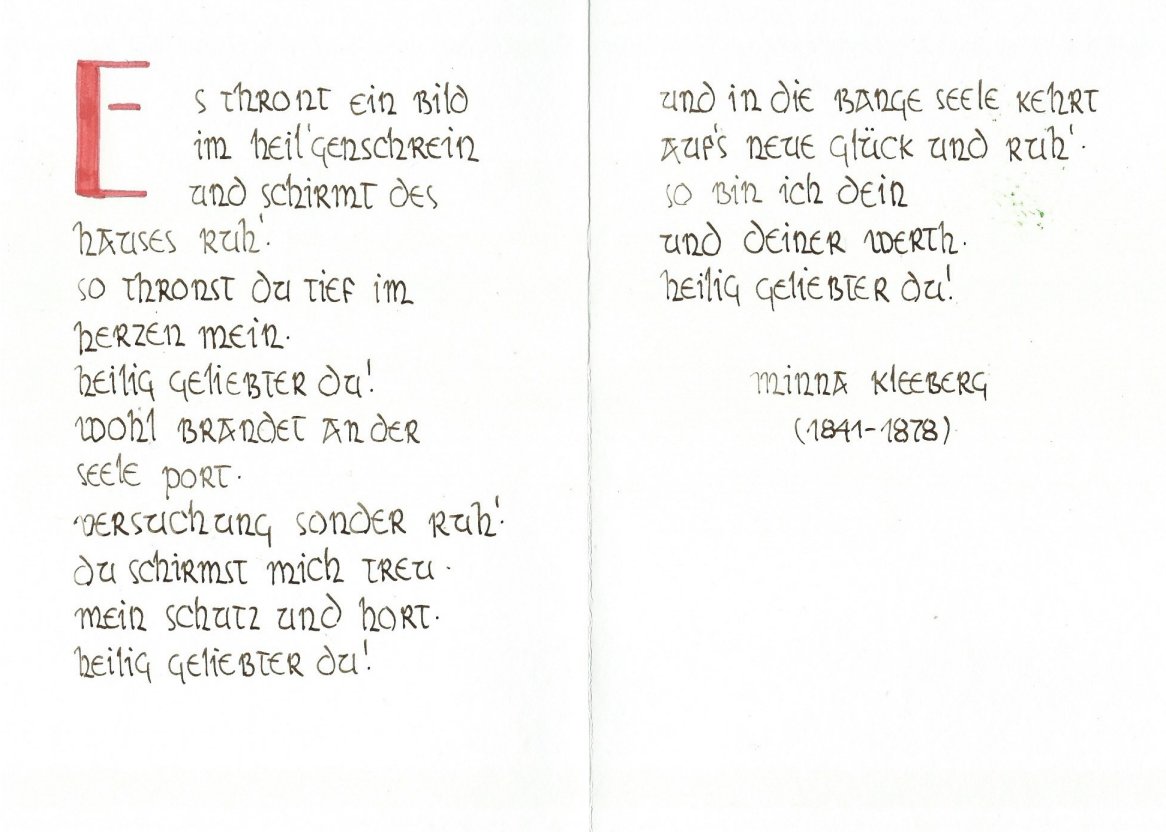 Es thront ein Bild
im heil'genschrein
und schirmt des
hauses ruh'.
so thronst du tief im
herzen mein.
heilig geliebter du!
wohl brandet an der
seele port.
versuchung sonder ruh'.
du schirmst mich treu.
mein schutz und hort.
heilig geliebter du!
und in die bange seele kehrt
auf's neue glück und ruh'.
so bin ich dein
und deiner werth.
heilig geliebter du!
minna kleeberg
(1841-1878)